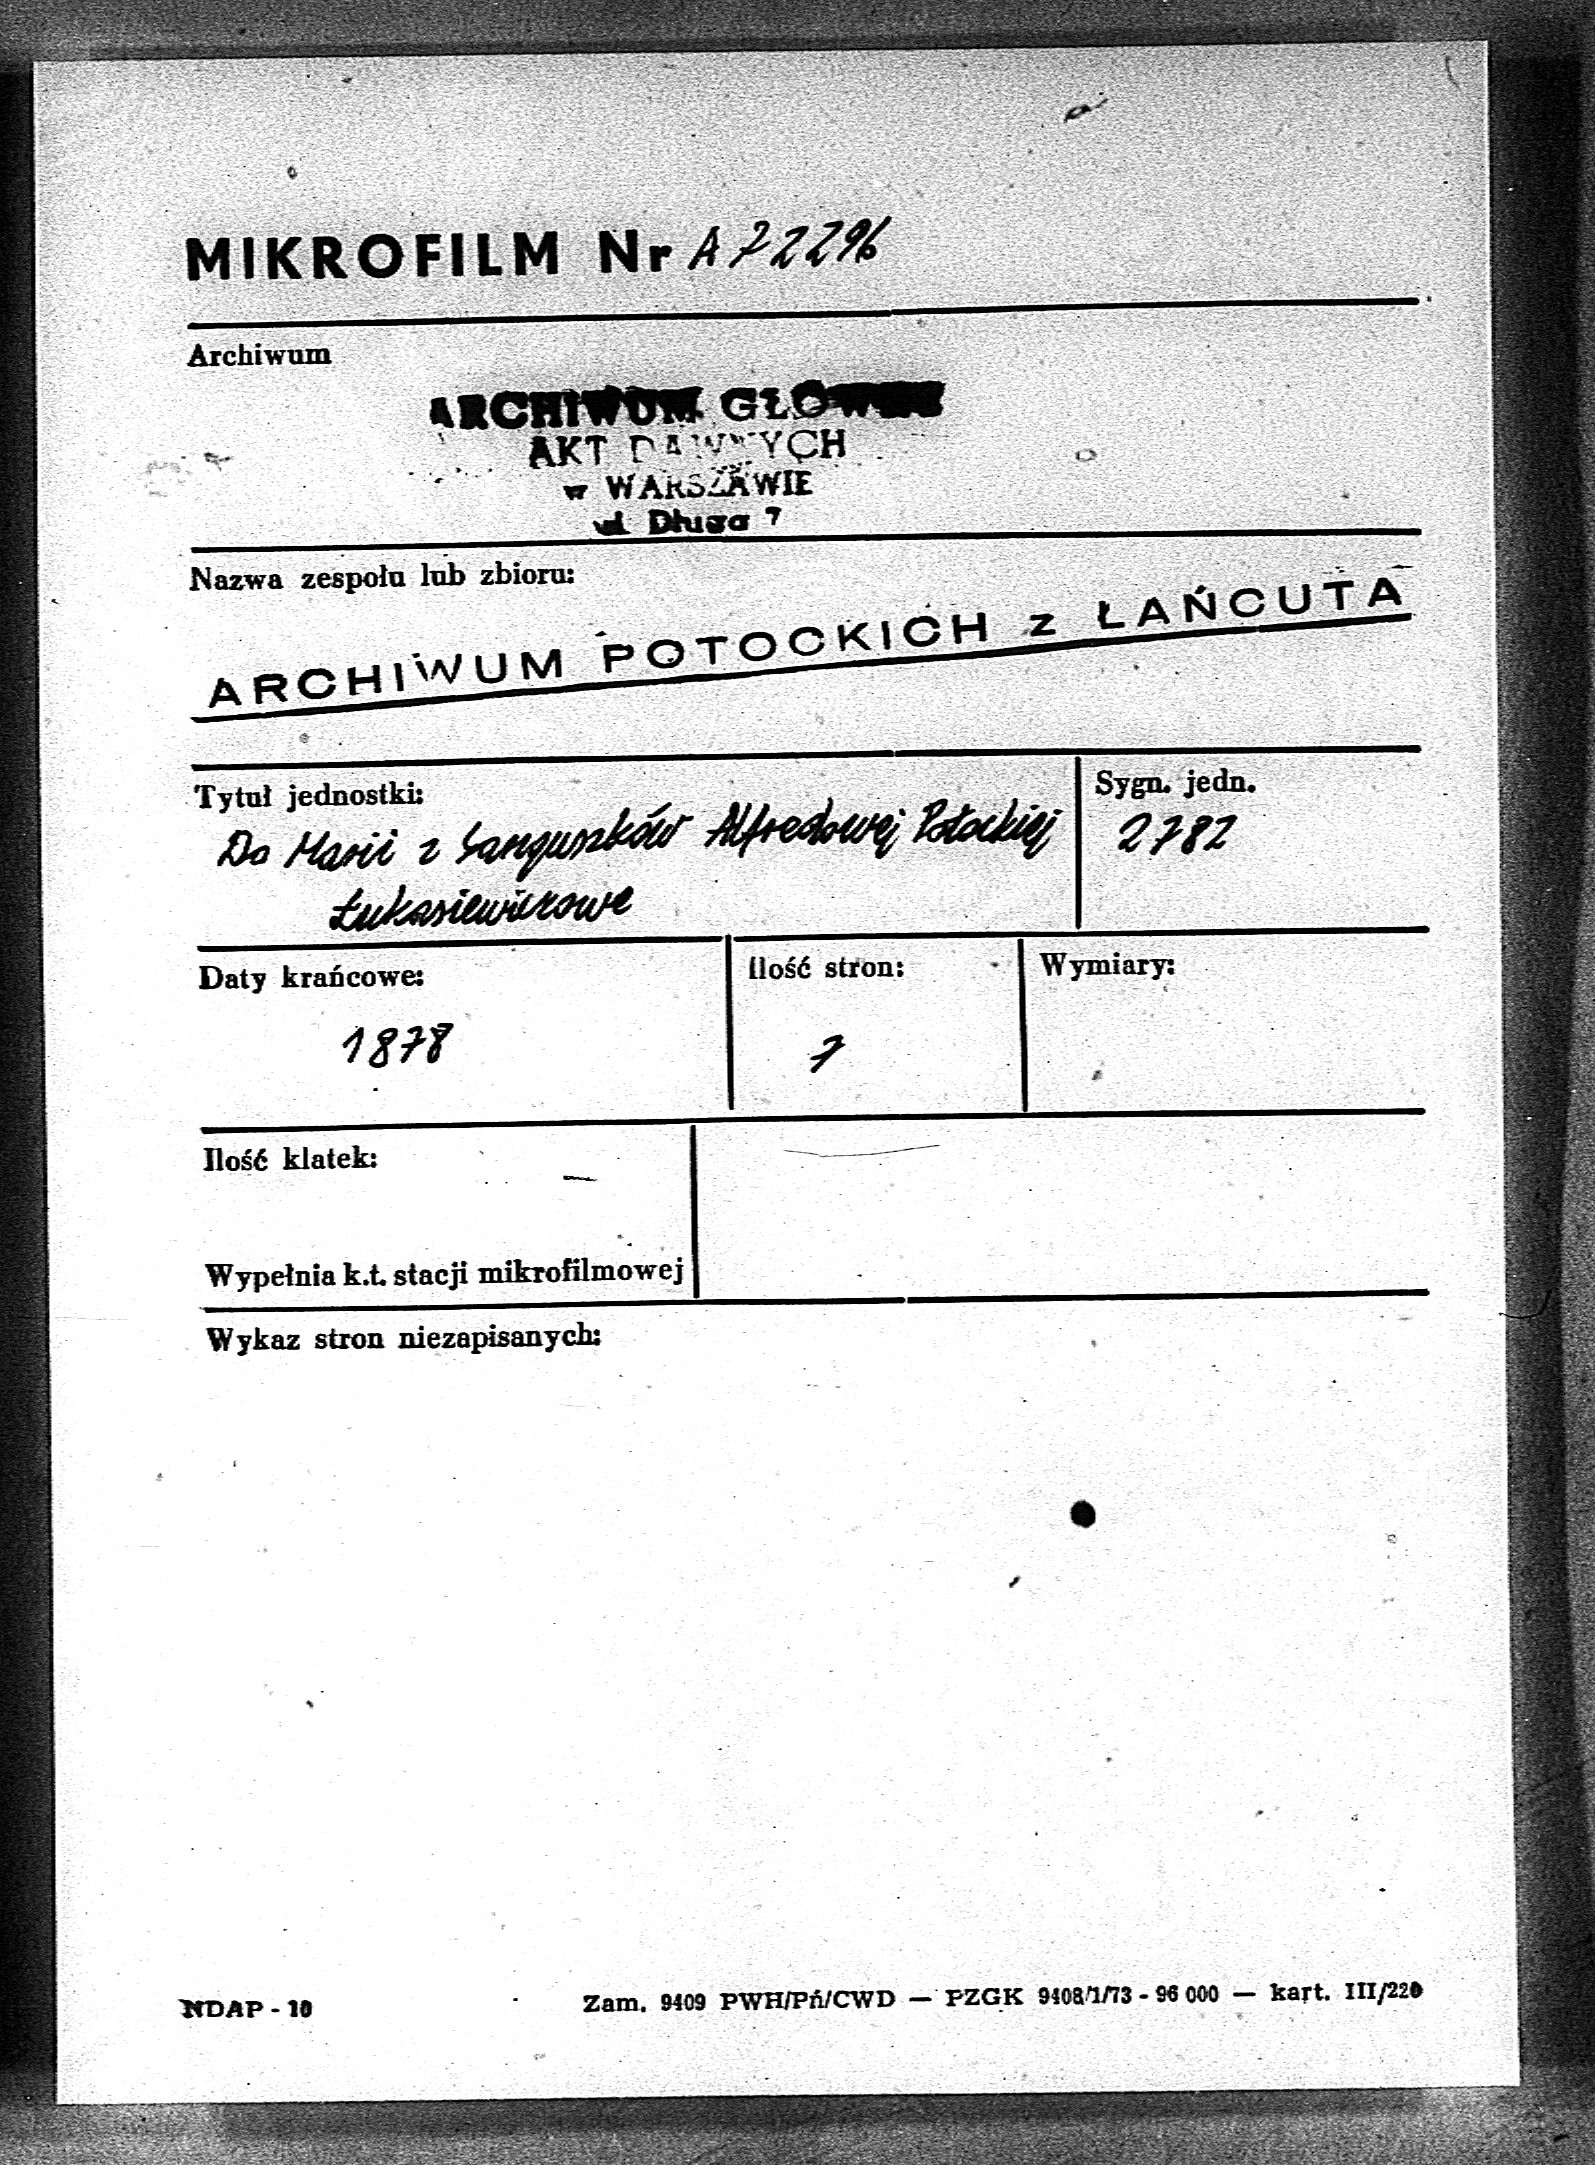 MIKROFILM Nr A 72296
Archiwum
ARCHIWUM GŁÓWNE
AKT DAWNYCH
w WARSZAWIE
ul. Długa 7
Nazwa zespołu lub zbioru:
ARCHIWUM POTOCKICH z ŁAŃCUTA
Tytuł jednostki:
Sygn. jedn.
Do Marii z Sanguszków Alfredowej Potockiej
2782
Łukasiewiczowe
Daty krańcowe:
Ilość stron:
Wymiary:
1878
7
Ilość klatek:
Wypełnia k.t. stacji mikrofilmowej
Wykaz stron niezapisanych:
NDAP - 10
Zam. 9409 PWH/Pń/CWD — PZGK 9408/1/73 - 96 000 — kart. III/220